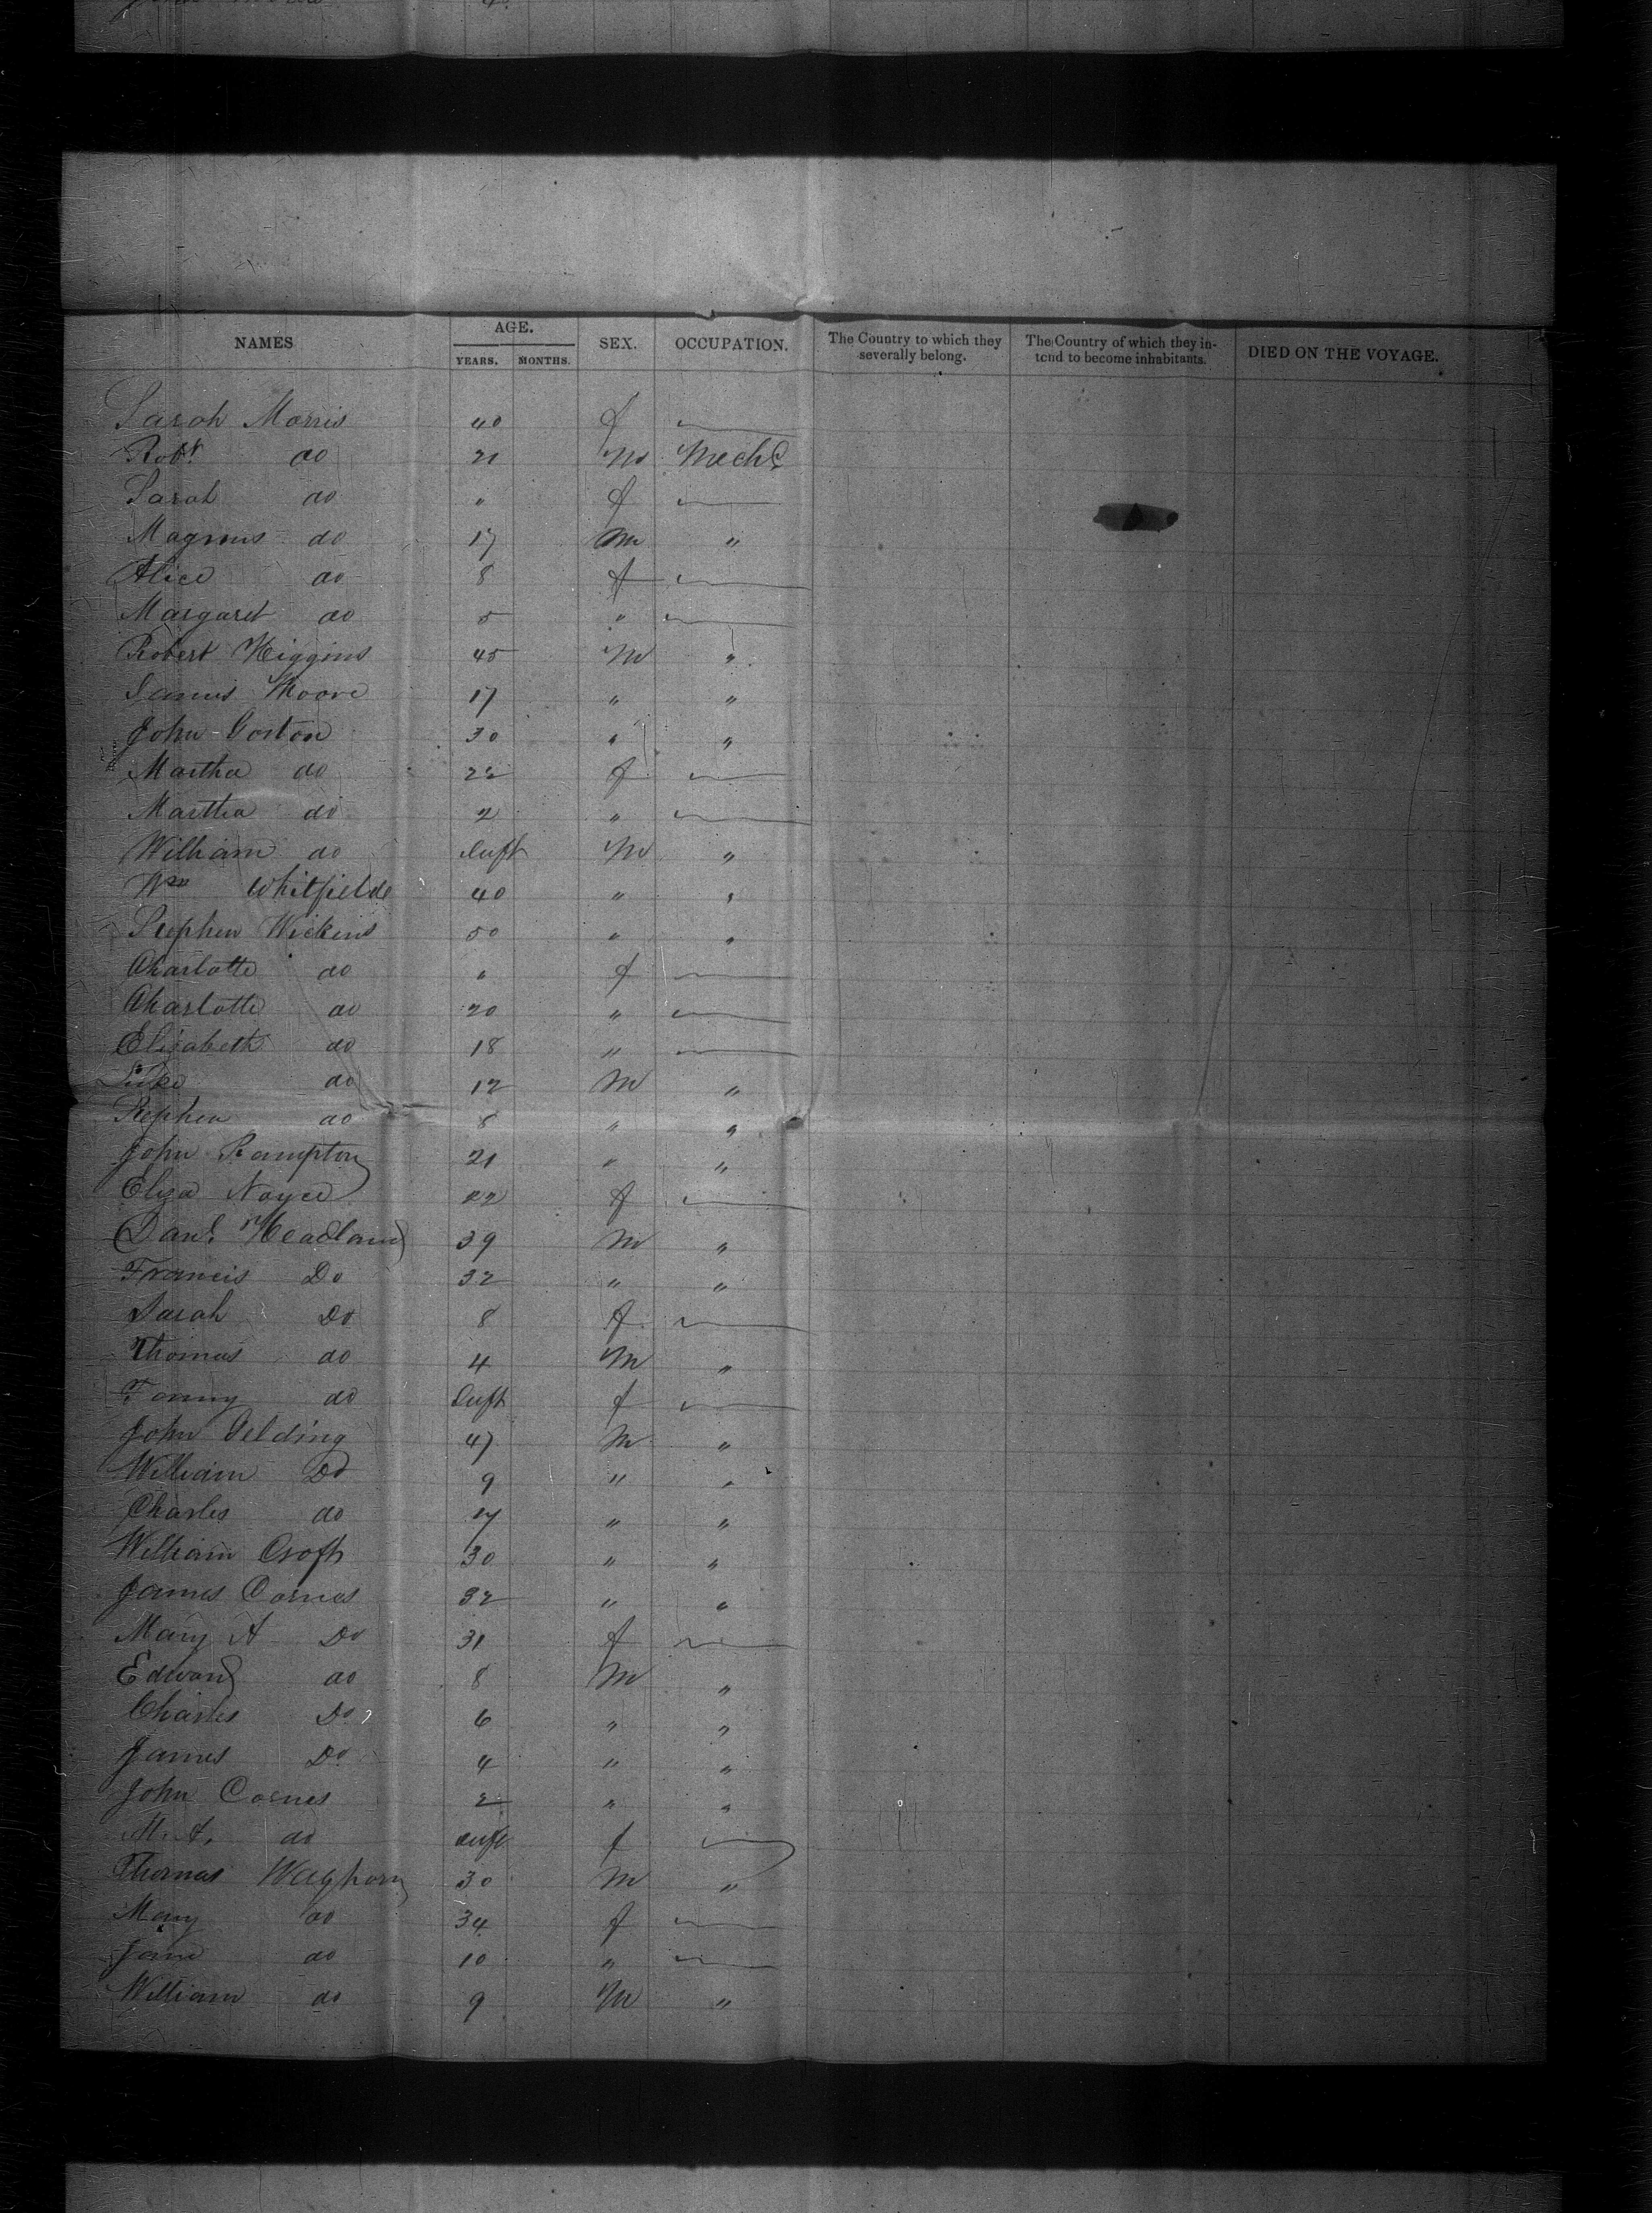 NAMES AGE. YEARS. MONTHS. SEX. OCCUPATION. The Country to which they severally belong. The Country of which they intend to become inhabitants. DIED ON THE VOYAGE.
Sarah Morris 40 f
Robt. do 21 M Mechc
Sarah do " f
Magnus do 17 M "
Alice do 8 f
Margaret do 5 "
Robert Higgins 45 M "
James Moore 17 " "
John Gorton 30 " "
Martha do 22 f
Martha do 2 "
William do Inft M "
Wm Whitfield 40 " "
Stephen Wickens 50 " "
Charlotte do " f
Charlotte do 20 "
Elizabeth do 18 "
Luke do 12 M "
Stephen do 8 " "
John Rampton 21 " "
Eliza Noyce 22 f
Danl. Headland 39 M "
Francis Do 32 " "
Sarah Do 8 f
Thomas do 4 M "
Fanny do Inft f
John Gelding 47 M "
William Do 9 " "
Charles do 7 " "
William Croft 30 " "
James Cornes 32 " "
Mary A Do 31 f
Edward do 8 M "
Charles Do 6 " "
James Do 4 " "
John Cornes 2 " "
M. A. do Inft f
Thomas Waghorn 30 M "
Mary do 34 f
Jane do 10 "
William do 9 M "